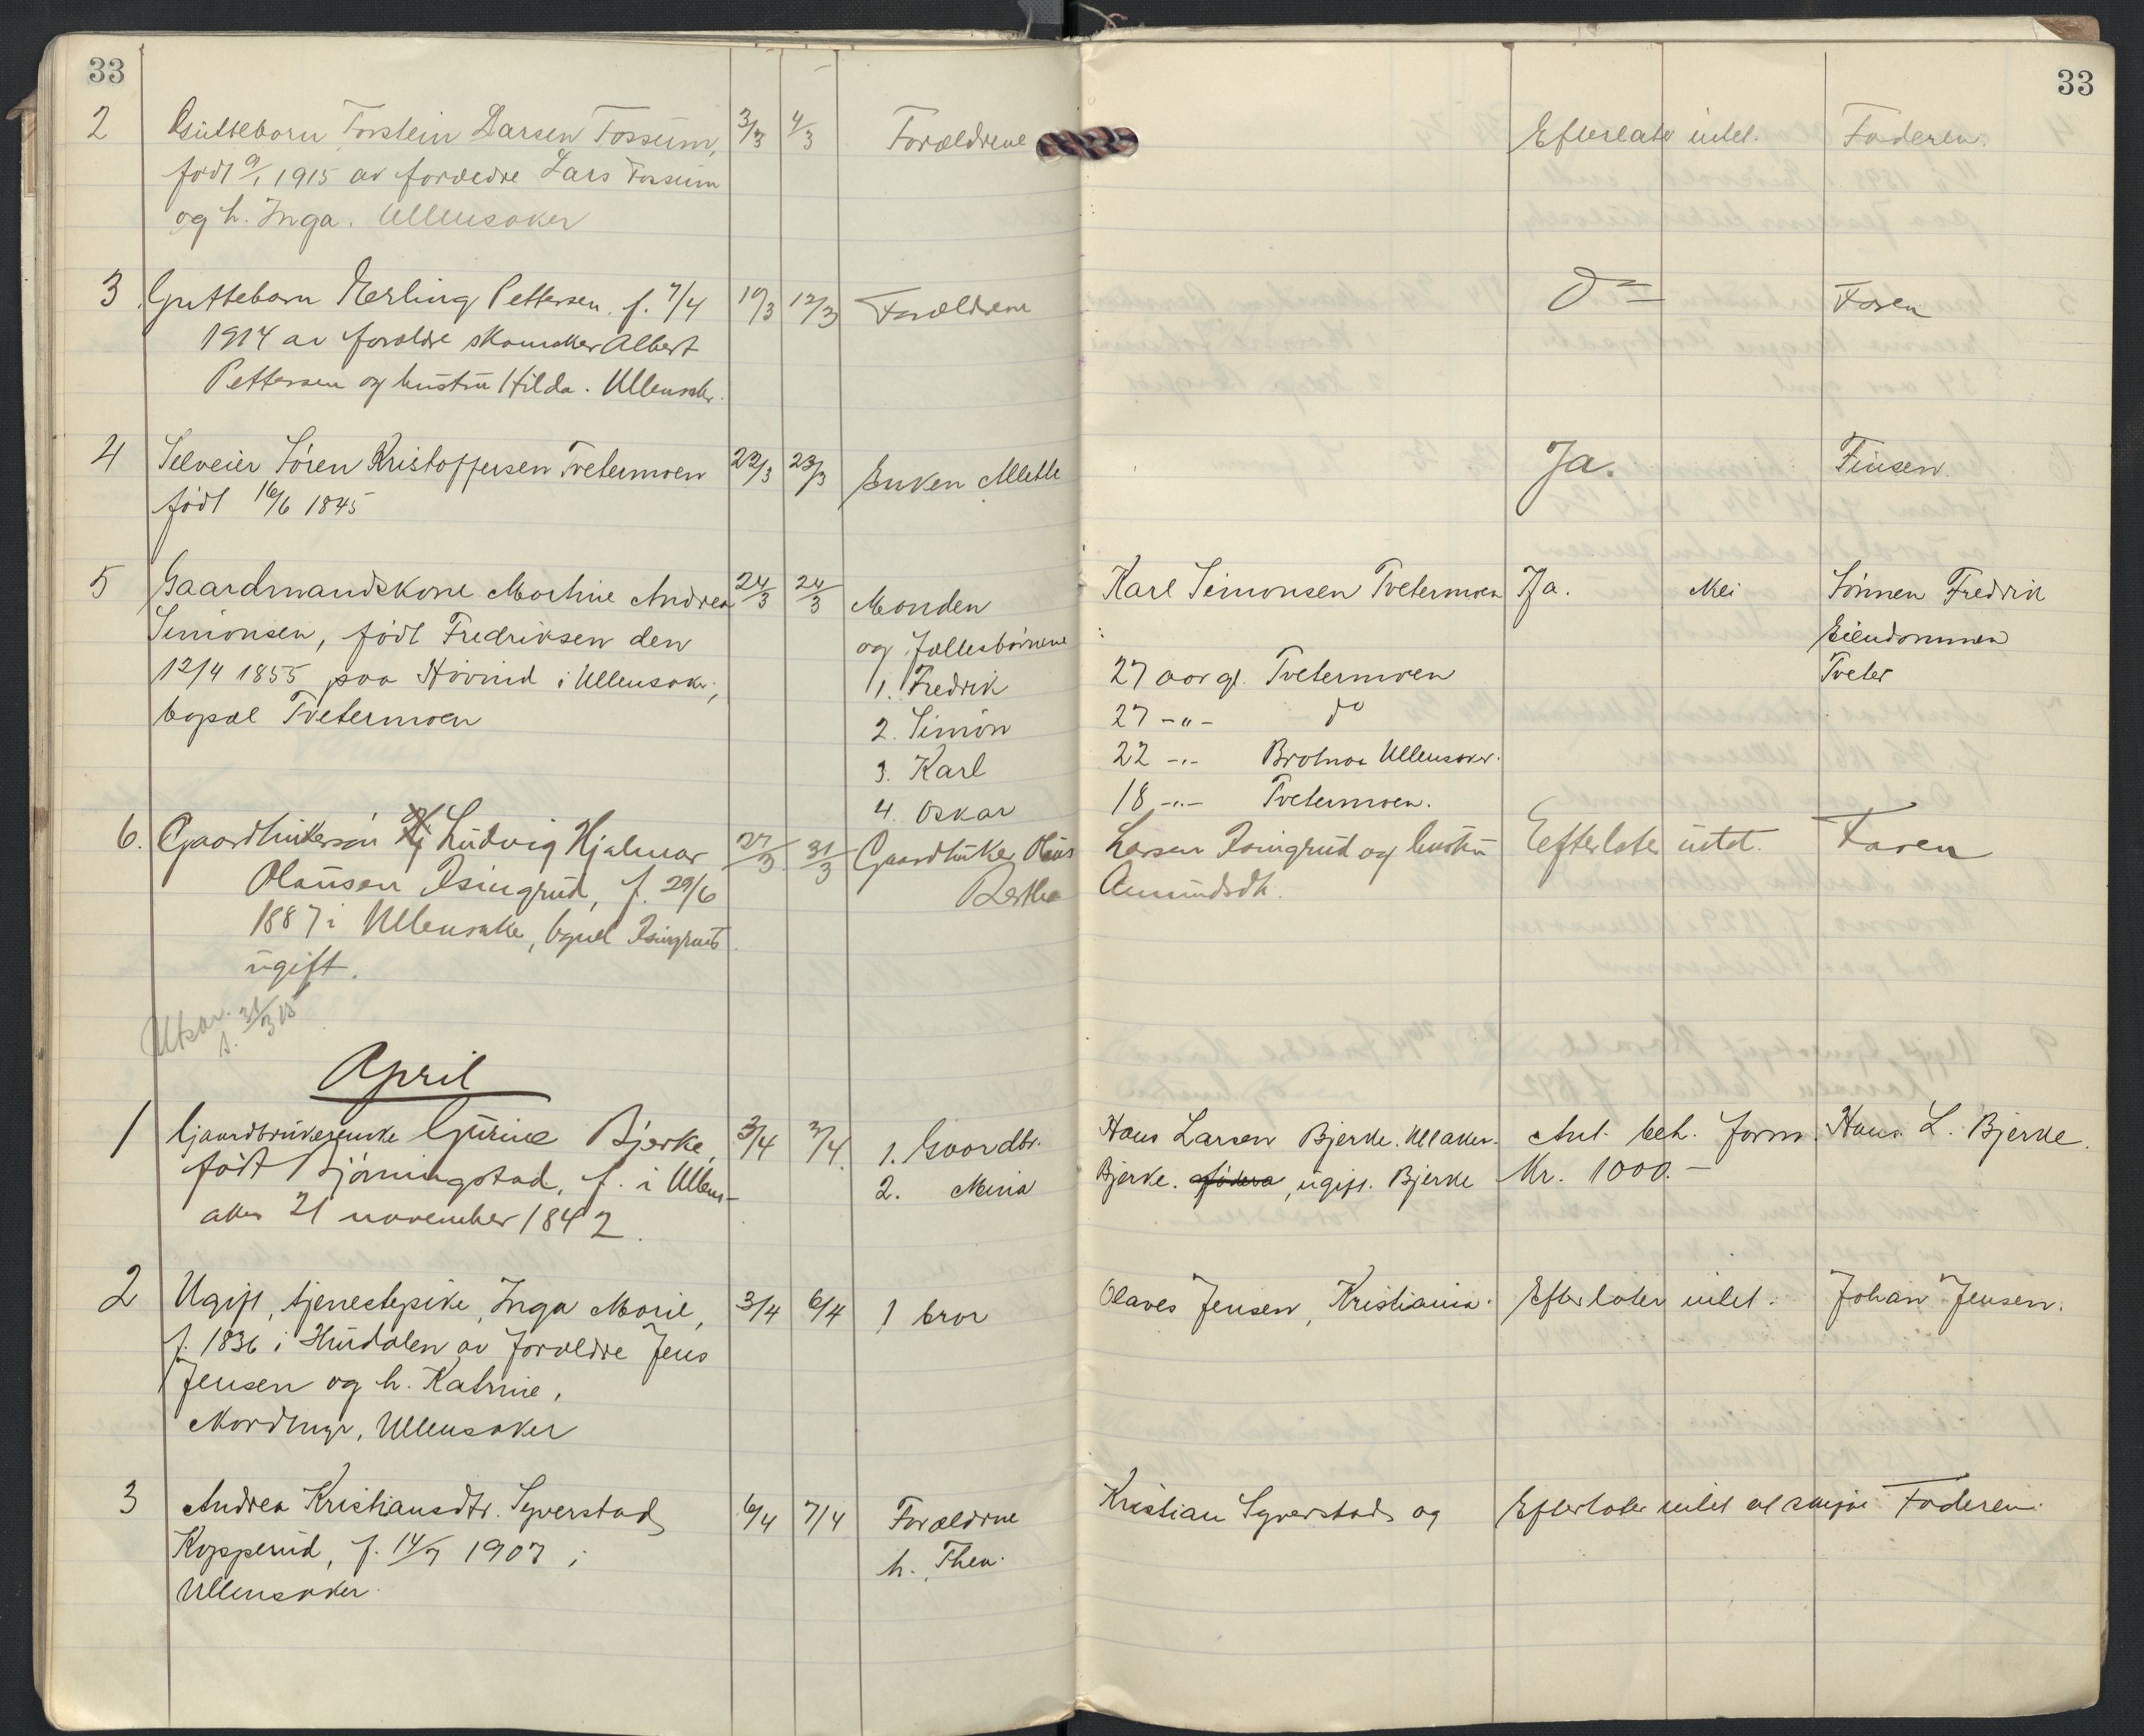 33
33
2 Guttebarn Torstein Larsen Fossum, 3/3 4/3 Forældrene Efterlater intet. Faderen.
født 9/1 1915 av forældre Lars Fossum
og h. Inga. Ullensaker
3 Guttebarn Erling Pettersen f. 7/4 10/3 12/3 Forældrene Do Faren
1914 av forældre skomaker Albert
Pettersen og hustru Hilda. Ullensaker.
4 Selveier Søren Kristoffersen Tvetermoen 22/3 23/3 Enken Mette Ja.
født 16/6 1845
5 Gaardmandskone Martine Andrea 24/3 24/3 Manden Karl Simonsen Tvetermoen Ja. Nei Sønnen Fredrik
Simonsen, født Fredriksen den og fællesbørnene Eiendommen
12/4 1855 paa Hovind i Ullensaker, 1. Fredrik 27 aar gl. Tvetermoen Tveter
bopæl Tvetermoen 2. Simon 27 -"- do
3. Karl 22 -"- Ullensaker.
4. Oskar 18 -"- Tvetermoen.
6. Gaardbrukersøn Ludvig Hjalmar 27/3 31/3 Gaardbruker Hans Larsen Isingrud og hustru Efterlater intet. Faren
Olausen Isingrud, f. 29/6 Bertha Amundsdtr.
1887 i Ullensaker, bopæl Isingrud
ugift.
31/3 15
April
1 Gaardbrukerenke Gurine Bjerke, 3/4 3/4 1. Gaardbr. Hans Larsen Bjerke. Ullaker. Ant. beh. form. Hans L. Bjerke.
født Bjørningstad, f. i Ullens- 2. Mina Bjerke. ugift. Bjerke Kr. 1000.-
aker 21 november 1842.
2 Ugift tjenestepike, Inga Marie, 3/4 6/4 1 bror Olaves Jensen, Kristiania. Efterlater intet. Johan Jensen.
f. 1836 i Hurdalen av forældre Jens
Jensen og h. Katrine,
Nordbyr, Ullensaker
3 Andrea Kristiansdtr. Syverstad, 6/4 7/4 Forældrene Kristian Syverstad og Efterlater intet at skifte Faderen.
Kopperud, f. 14/7 1907 i h. Thea.
Ullensaker.